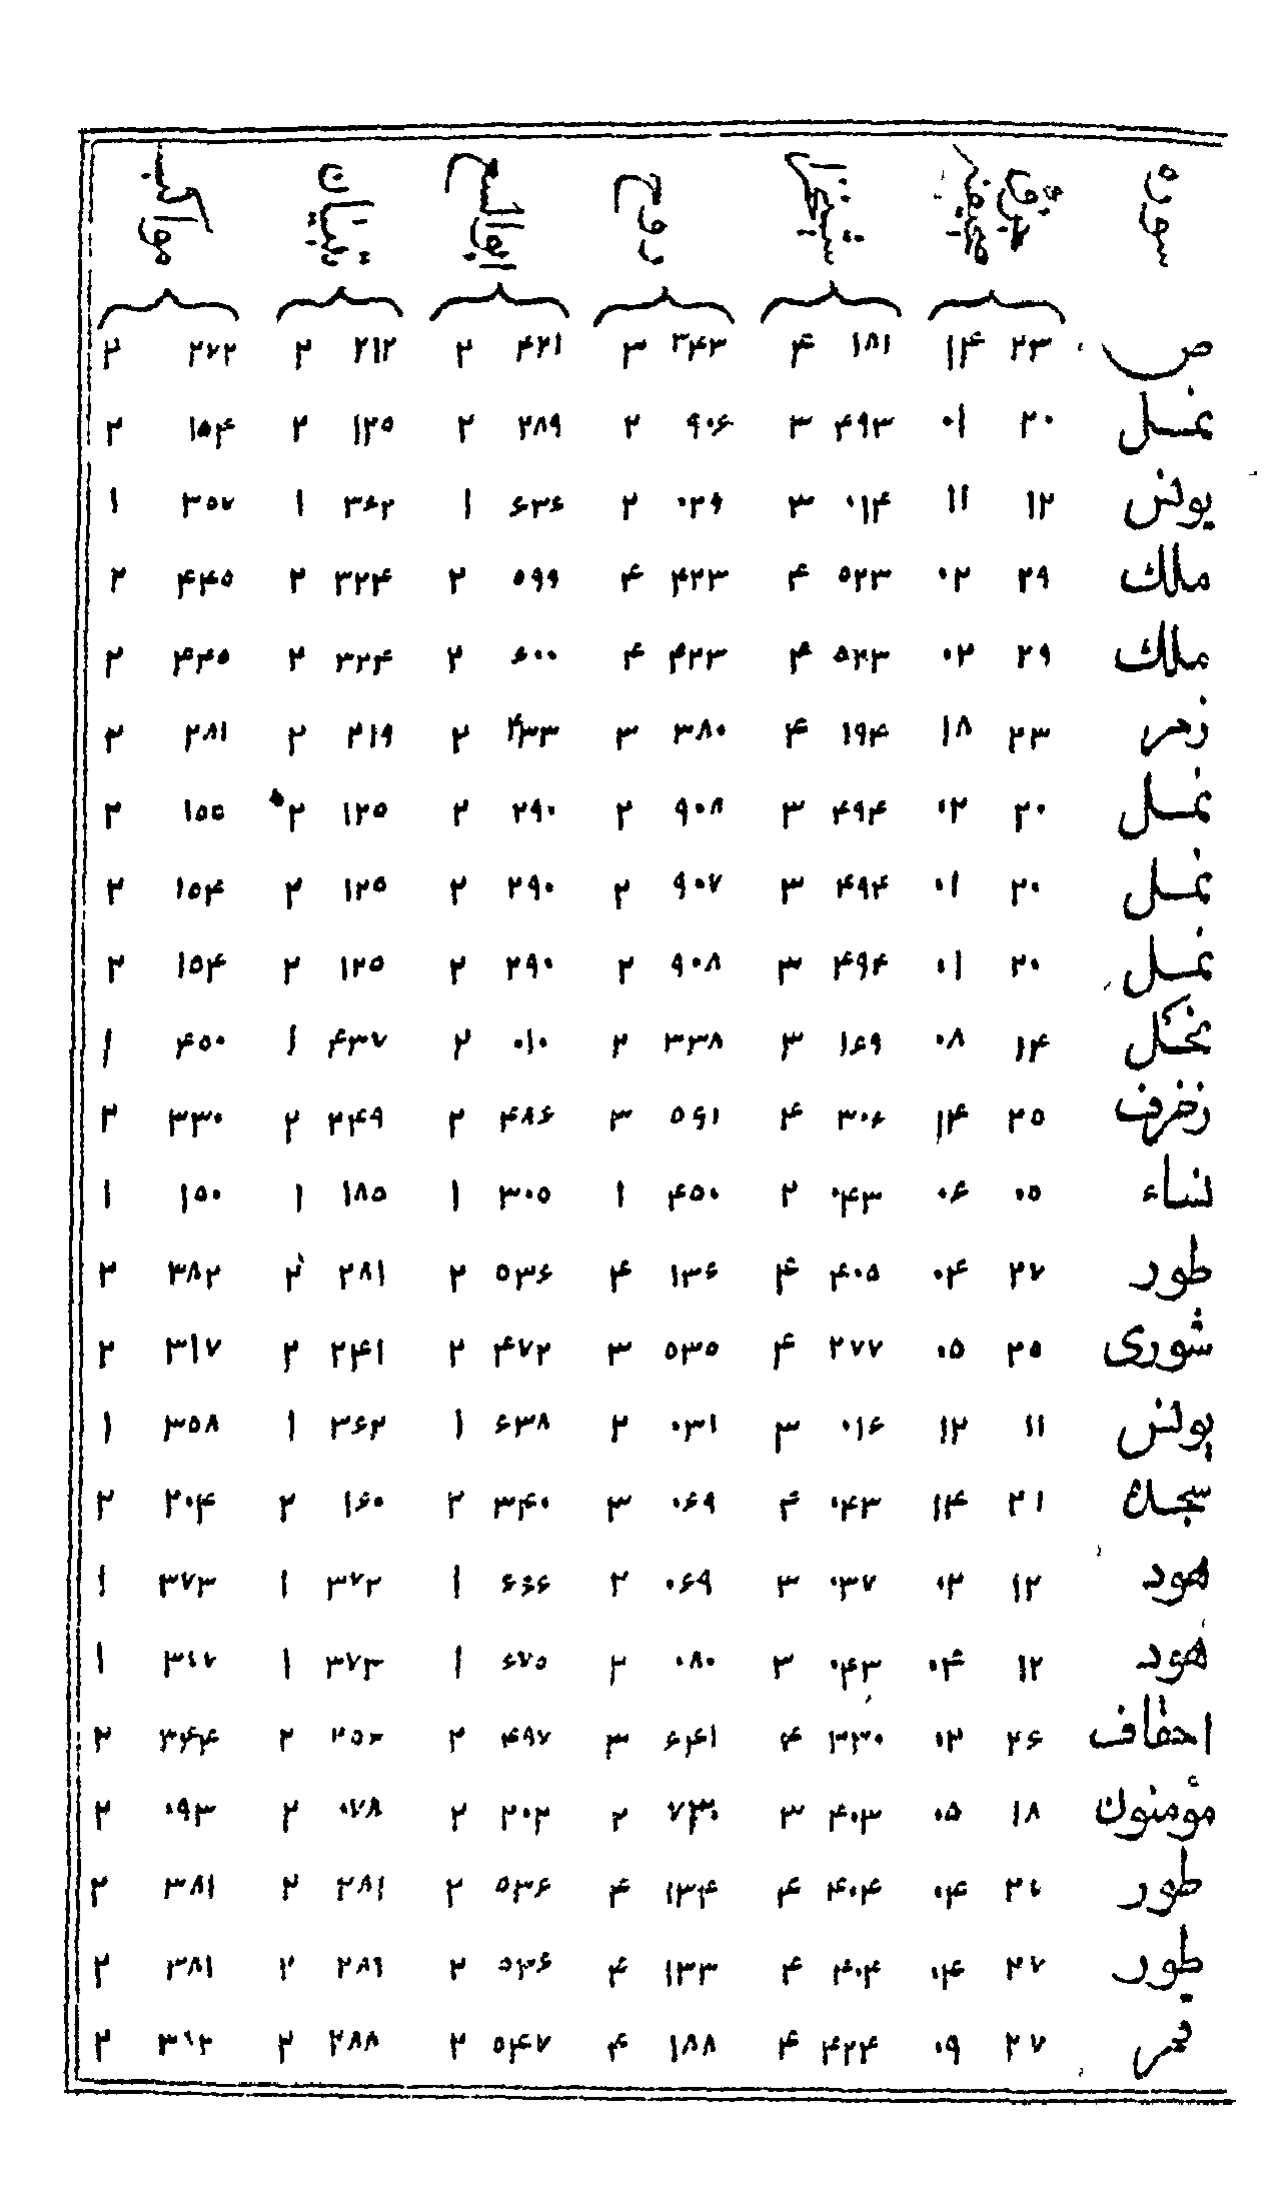 سوره روح تبیان
ص ۲۳ ۱۴ ۱۸۱ ۴ ۳۴۳ ۳ ۴۲۱ ۲ ۲۱۲ ۲ ۲۷۲ ۲
نمل ۲۰ ۰۱ ۴۹۳ ۳ ۹۰۶ ۲ ۲۸۹ ۲ ۱۲۵ ۲ ۱۵۴ ۲
یونس ۱۲ ۱۱ ۰۱۴ ۳ ۰۲۹ ۲ ۶۳۶ ۱ ۳۶۲ ۱ ۳۵۷ ۱
ملک ۲۹ ۰۲ ۵۲۳ ۴ ۴۲۳ ۴ ۵۹۹ ۲ ۳۲۴ ۲ ۴۴۵ ۲
ملک ۲۹ ۰۲ ۵۲۳ ۴ ۴۲۳ ۴ ۶۰۰ ۲ ۳۲۴ ۲ ۴۴۵ ۲
زمر ۲۳ ۱۸ ۱۹۴ ۴ ۳۸۰ ۳ ۴۳۳ ۲ ۲۱۹ ۲ ۲۸۱ ۲
نمل ۲۰ ۰۲ ۴۹۴ ۳ ۹۰۸ ۲ ۲۹۰ ۲ ۱۲۵ ۲ ۱۵۵ ۲
نمل ۲۰ ۰۱ ۴۹۴ ۳ ۹۰۷ ۲ ۲۹۰ ۲ ۱۲۵ ۲ ۱۵۴ ۲
نمل ۲۰ ۰۱ ۴۹۴ ۳ ۹۰۸ ۲ ۲۹۰ ۲ ۱۲۵ ۲ ۱۵۴ ۲
نحل ۱۴ ۰۸ ۱۶۹ ۳ ۳۳۸ ۲ ۰۱۰ ۲ ۴۳۷ ۱ ۴۵۰ ۱
زخرف ۲۵ ۱۴ ۳۰۶ ۴ ۵۶۱ ۳ ۴۸۶ ۲ ۲۴۹ ۲ ۳۳۰ ۲
نساء ۰۵ ۰۶ ۰۴۳ ۲ ۴۵۰ ۱ ۳۰۵ ۱ ۱۸۵ ۱ ۱۵۰ ۱
طور ۲۷ ۰۴ ۴۰۵ ۴ ۱۳۶ ۴ ۵۳۶ ۲ ۲۸۱ ۲ ۳۸۲ ۲
شوری ۲۵ ۰۵ ۲۷۷ ۴ ۵۳۵ ۳ ۴۷۲ ۲ ۲۴۱ ۲ ۳۱۷ ۲
یونس ۱۱ ۱۲ ۰۱۶ ۳ ۰۳۱ ۲ ۶۳۸ ۱ ۳۶۲ ۱ ۳۵۸ ۱
سجده ۲۱ ۱۴ ۰۴۳ ۴ ۰۶۹ ۳ ۳۴۰ ۲ ۱۶۰ ۲ ۲۰۴ ۲
هود ۱۲ ۰۲ ۰۳۷ ۳ ۰۶۹ ۲ ۶۶۶ ۱ ۳۷۲ ۱ ۳۷۳ ۱
هود ۱۲ ۰۴ ۰۴۳ ۳ ۰۸۰ ۲ ۶۷۵ ۱ ۳۷۳ ۱ ۱
احقاف ۲۶ ۰۲ ۳۳۰ ۴ ۶۴۱ ۳ ۴۹۷ ۲ ۲ ۳۴۴ ۲
مؤمنون ۱۸ ۰۵ ۴۰۳ ۳ ۷۳۰ ۲ ۲۰۲ ۲ ۰۷۸ ۲ ۰۹۳ ۲
طور ۲۷ ۰۴ ۴۰۴ ۴ ۱۳۴ ۴ ۵۳۶ ۲ ۲۸۱ ۲ ۳۸۱ ۲
طور ۲۷ ۰۴ ۴۰۴ ۴ ۱۳۳ ۴ ۵۳۶ ۲ ۲۸۱ ۲ ۳۸۱ ۲
قمر ۲۷ ۰۹ ۴۲۴ ۴ ۱۸۸ ۴ ۵۴۷ ۲ ۲۸۸ ۲ ۲